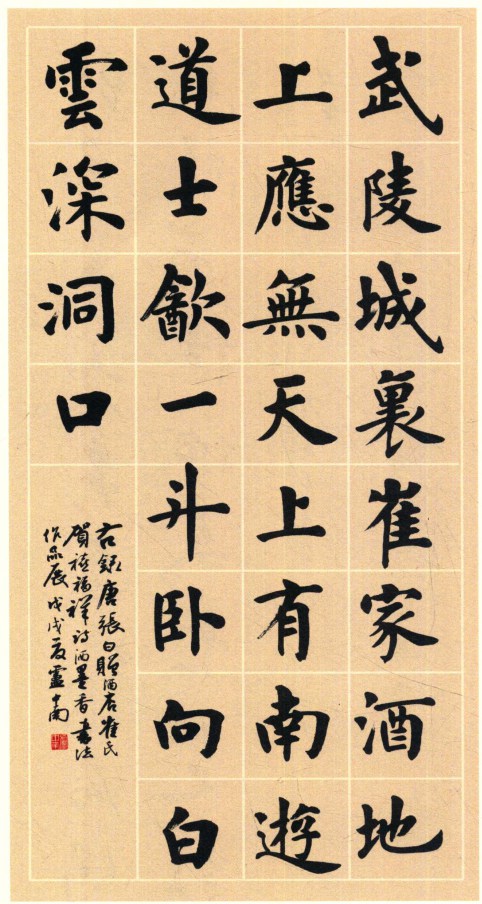 武陵城裏崔家酒地
上應無天上有南遊
道士歠一斗卧向白
雲深洞口
右録唐張白贈酒店崔氏
賀禧福祥詩酒墨香書法
作品展戊戌夏靈南